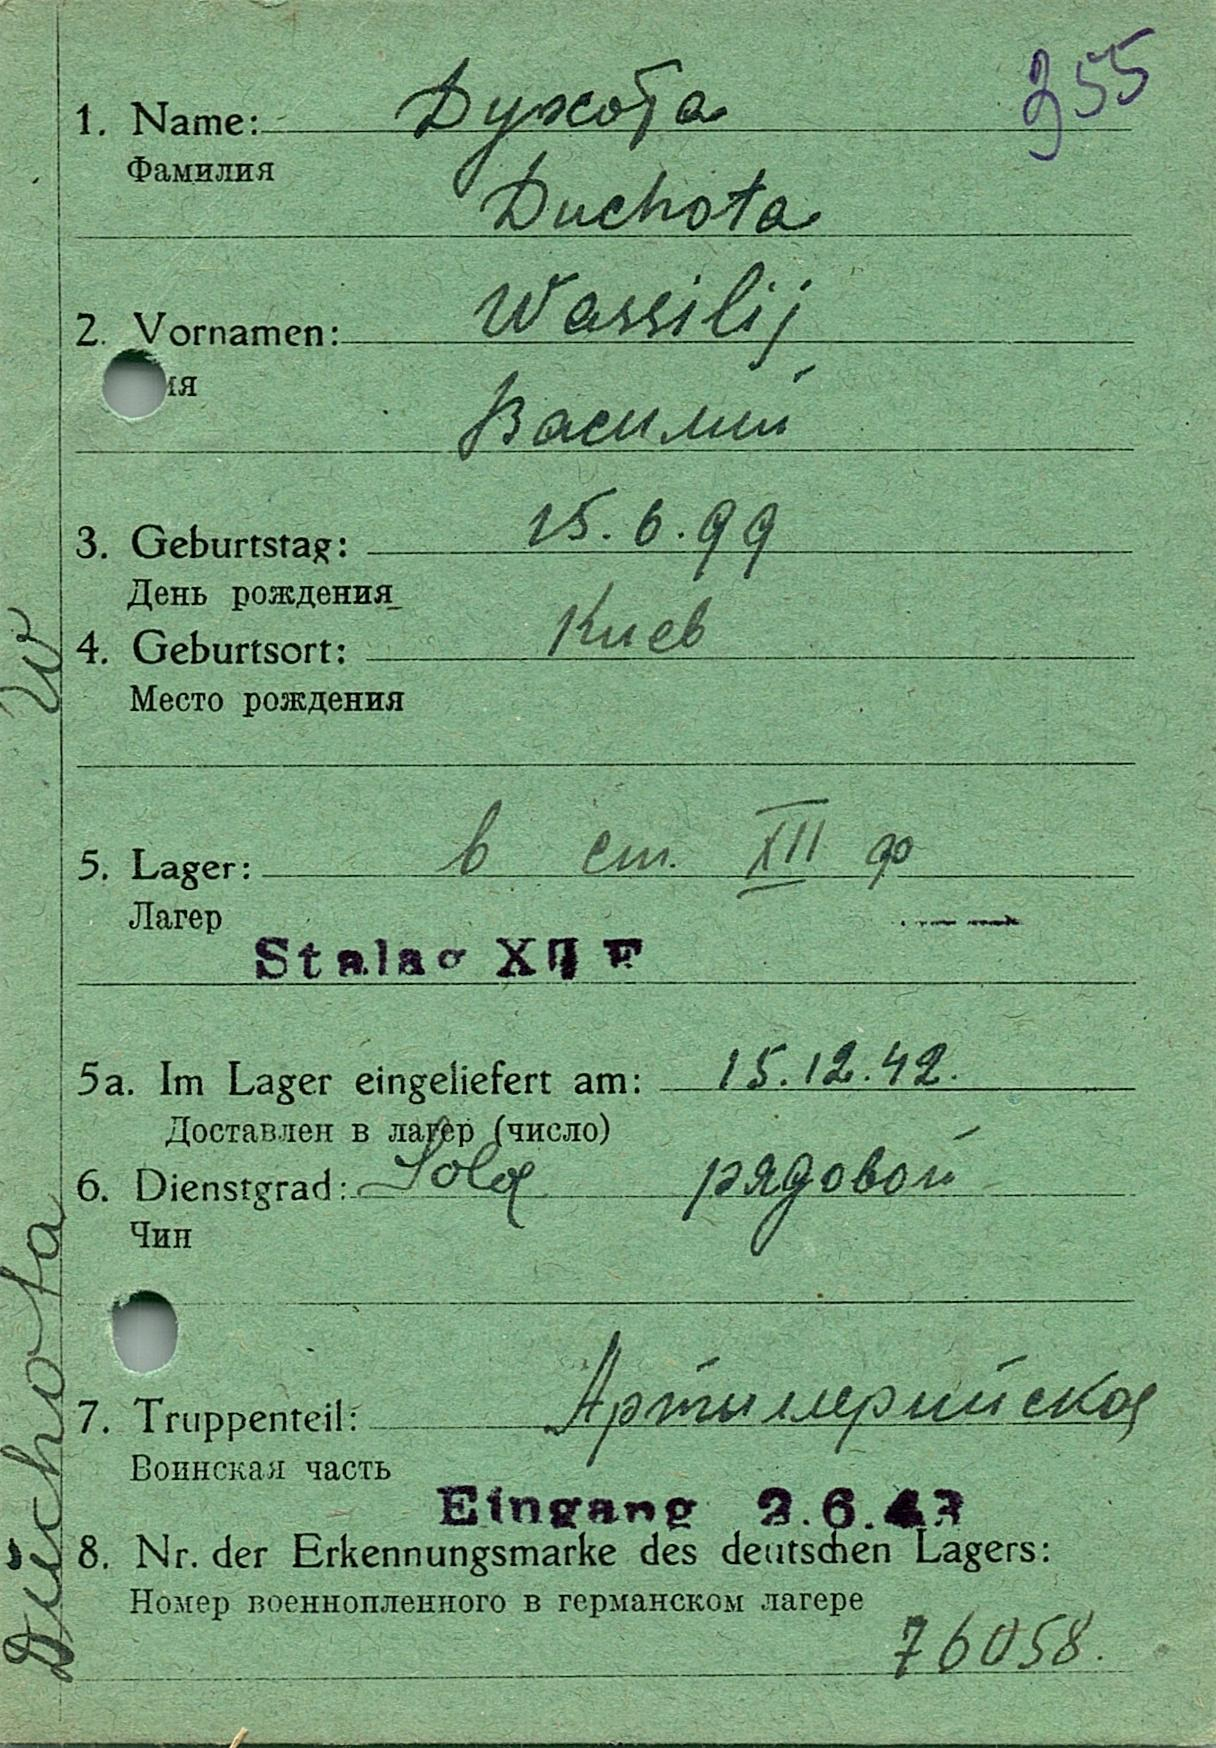 355
1. Name: Духота
Фамилия
Duchota
2. Vornamen: Wassilij
ия
Василий
3. Geburtstag: 15.6.99
День рождения
4. Geburtsort: Киев
Место рождения
5. Lager: в ст. XII ф
Лагер
Stalag XII F
5a. Im Lager eingeliefert am: 15.12.42.
Доставлен в лагер (число)
6. Dienstgrad: Sold рядовой
Чин
7. Truppenteil: Артилерийская
Воинская часть
Eingang 2.6.43
8. Nr. der Erkennungsmarke des deutschen Lagers:
Номер военнопленного в германском лагере
76058.
Duchota W